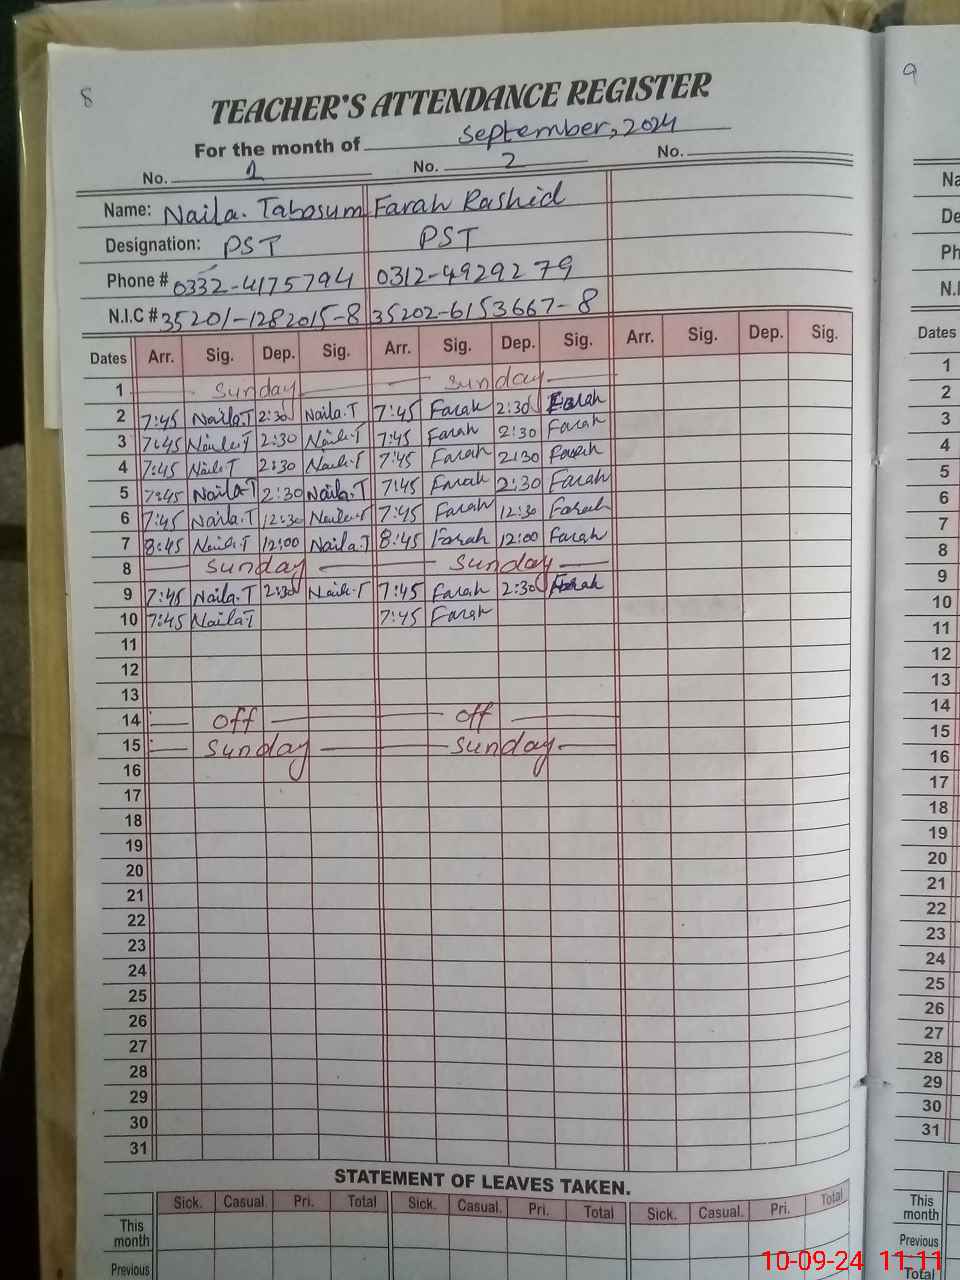 8
9
TEACHER'S ATTENDANCE REGISTER
For the month of September, 2024
No. 1 No. 2 No.
Name: Naila. Tabosum Farah Rashid
Designation: PST PST
Phone # 0332-4175794 0312-4929279
N.I.C # 35201-1282015-8 35202-6153667-8
Dates Arr. Sig. Dep. Sig. Arr. Sig. Dep. Sig. Arr. Sig. Dep. Sig.
1 Sunday Sunday
2 7:45 Naila.T 2:30 Naila.T 7:45 Farah 2:30 Farah
3 7:45 Naila.T 2:30 Naila.T 7:45 Farah 2:30 Farah
4 7:45 Naila.T 2:30 Naila.T 7:45 Farah 2:30 Farah
5 7:45 Naila.T 2:30 Naila.T 7:45 Farah 2:30 Farah
6 7:45 Naila.T 12:30 Naila.T 7:45 Farah 12:30 Farah
7 8:45 Naila.T 12:00 Naila.T 8:45 Farah 12:00 Farah
8 Sunday Sunday
9 7:45 Naila.T 2:30 Naila.T 7:45 Farah 2:30 Farah
10 7:45 Naila.T 7:45 Farah
11
12
13
14 off off
15 Sunday Sunday
16
17
18
19
20
21
22
23
24
25
26
27
28
29
30
31
STATEMENT OF LEAVES TAKEN.
Sick. Casual. Pri. Total Sick. Casual. Pri. Total Sick. Casual. Pri. Total
This month
Previous
Na
De
Ph
N.I
Dates
1
2
3
4
5
6
7
8
9
10
11
12
13
14
15
16
17
18
19
20
21
22
23
24
25
26
27
28
29
30
31
This month
Previous
Total
10-09-24 11:11